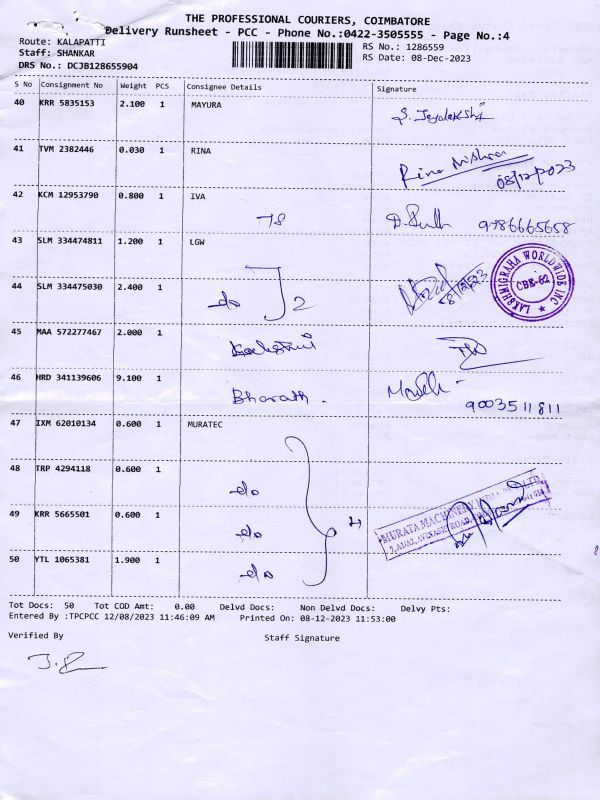 THE PROFESSIONAL COURIERS, COIMBATORE
Delivery Runsheet - PCC - Phone No.:0422-3505555 - Page No.:4
Route: KALAPATTI
Staff: SHANKAR
DRS No.: DCJB128655904
RS No.: 1286559
RS Date: 08-Dec-2023
S No Consignment No Weight PCS Consignee Details Signature
40 KRR 5835153 2.100 1 MAYURA
S. Jeyalakshi
41 TVM 2382446 0.030 1 RINA
Rina Mishra
08/12/2023
42 KCM 12953790 0.800 1 IVA
78 9786665658
43 SLM 334474811 1.200 1 LGW
LAKSHMIGRAHA WORLDWIDE INC
CBE-62
44 SLM 334475030 2.400 1
do 2
45 MAA 572277467 2.000 1
46 HRD 341139606 9.100 1
Bharath.
9003511811
47 IXM 62010134 0.600 1 MURATEC
48 TRP 4294118 0.600 1
do
49 KRR 5665501 0.600 1
do 4
MURATA MACHINERY INDIA
AVINASI ROAD
50 YTL 1065381 1.900 1
do
Tot Docs: 50 Tot COD Amt: 0.00 Delvd Docs: Non Delvd Docs: Delvy Pts:
Entered By :TPCPCC 12/08/2023 11:46:09 AM Printed On: 08-12-2023 11:53:00
Verified By Staff Signature